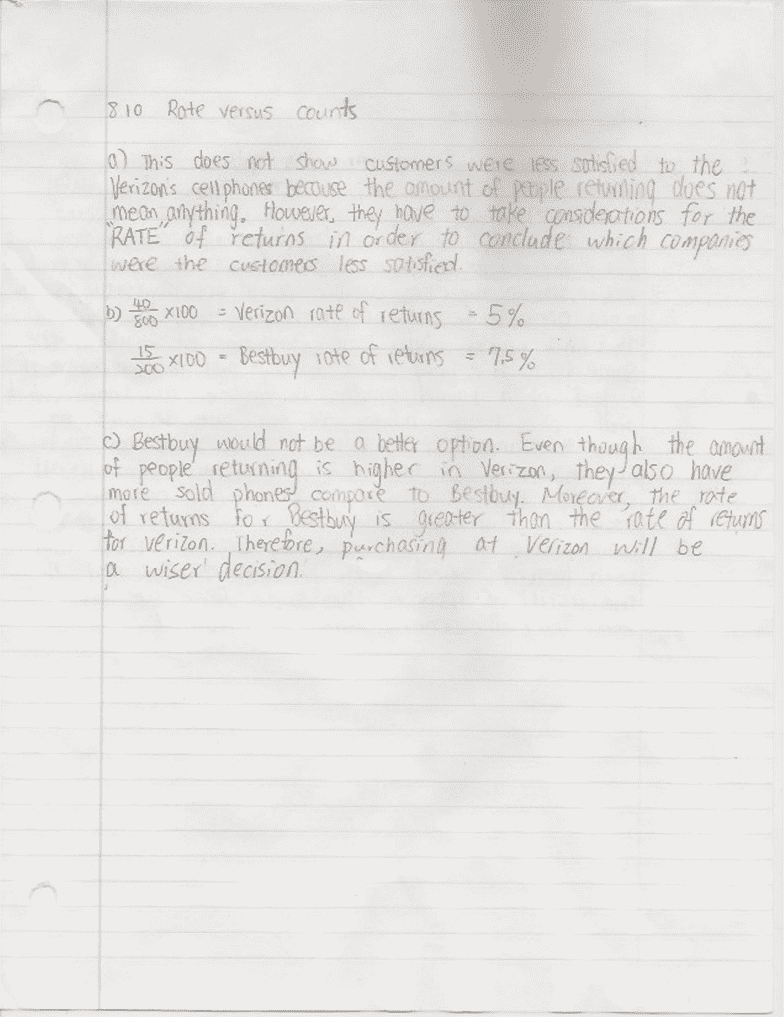 8.10 Rate versus counts
a) This does not show customers were less satisfied to the
Verizon's cellphones because the amount of people returning does not
mean anything. However, they have to take considerations for the
"RATE" of returns in order to conclude which companies
were the customers less satisfied.
b) 40/800 x100 = Verizon rate of returns = 5%
15/200 x100 = Bestbuy rate of returns = 7.5%
c) Bestbuy would not be a better option. Even though the amount
of people returning is higher in Verizon, they also have
more sold phones compare to Bestbuy. Moreover, the rate
of returns for Bestbuy is greater than the rate of returns
for verizon. Therefore, purchasing at Verizon will be
a wiser decision.